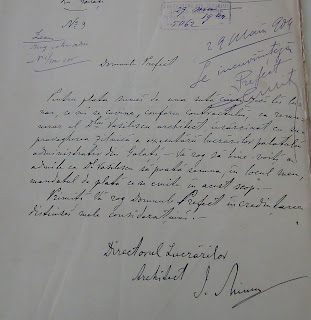 No 3
29
5062
29 Maiu 904
Se încuviințează
Prefect
Domnule Prefect
Pentru plata sumei de una sută cinci-zeci lei
ce mi se cuvine, conform contractului, ca remu-
nerar al Dlui Vasilescu architect însărcinat cu su-
pravegherea zilnică a executărei lucrărilor palatului
administrativ din Galați. - Vă rog să bine-voiți a
admite ca Dl Vasilescu să poată semna, în locul meu,
mandatul de plată ce se emite în acest scop. -
Primiți Vă rog Domnule Prefect încredințarea
distinsei mele considerațiuni. -
Directorul Lucrărilor
Architect